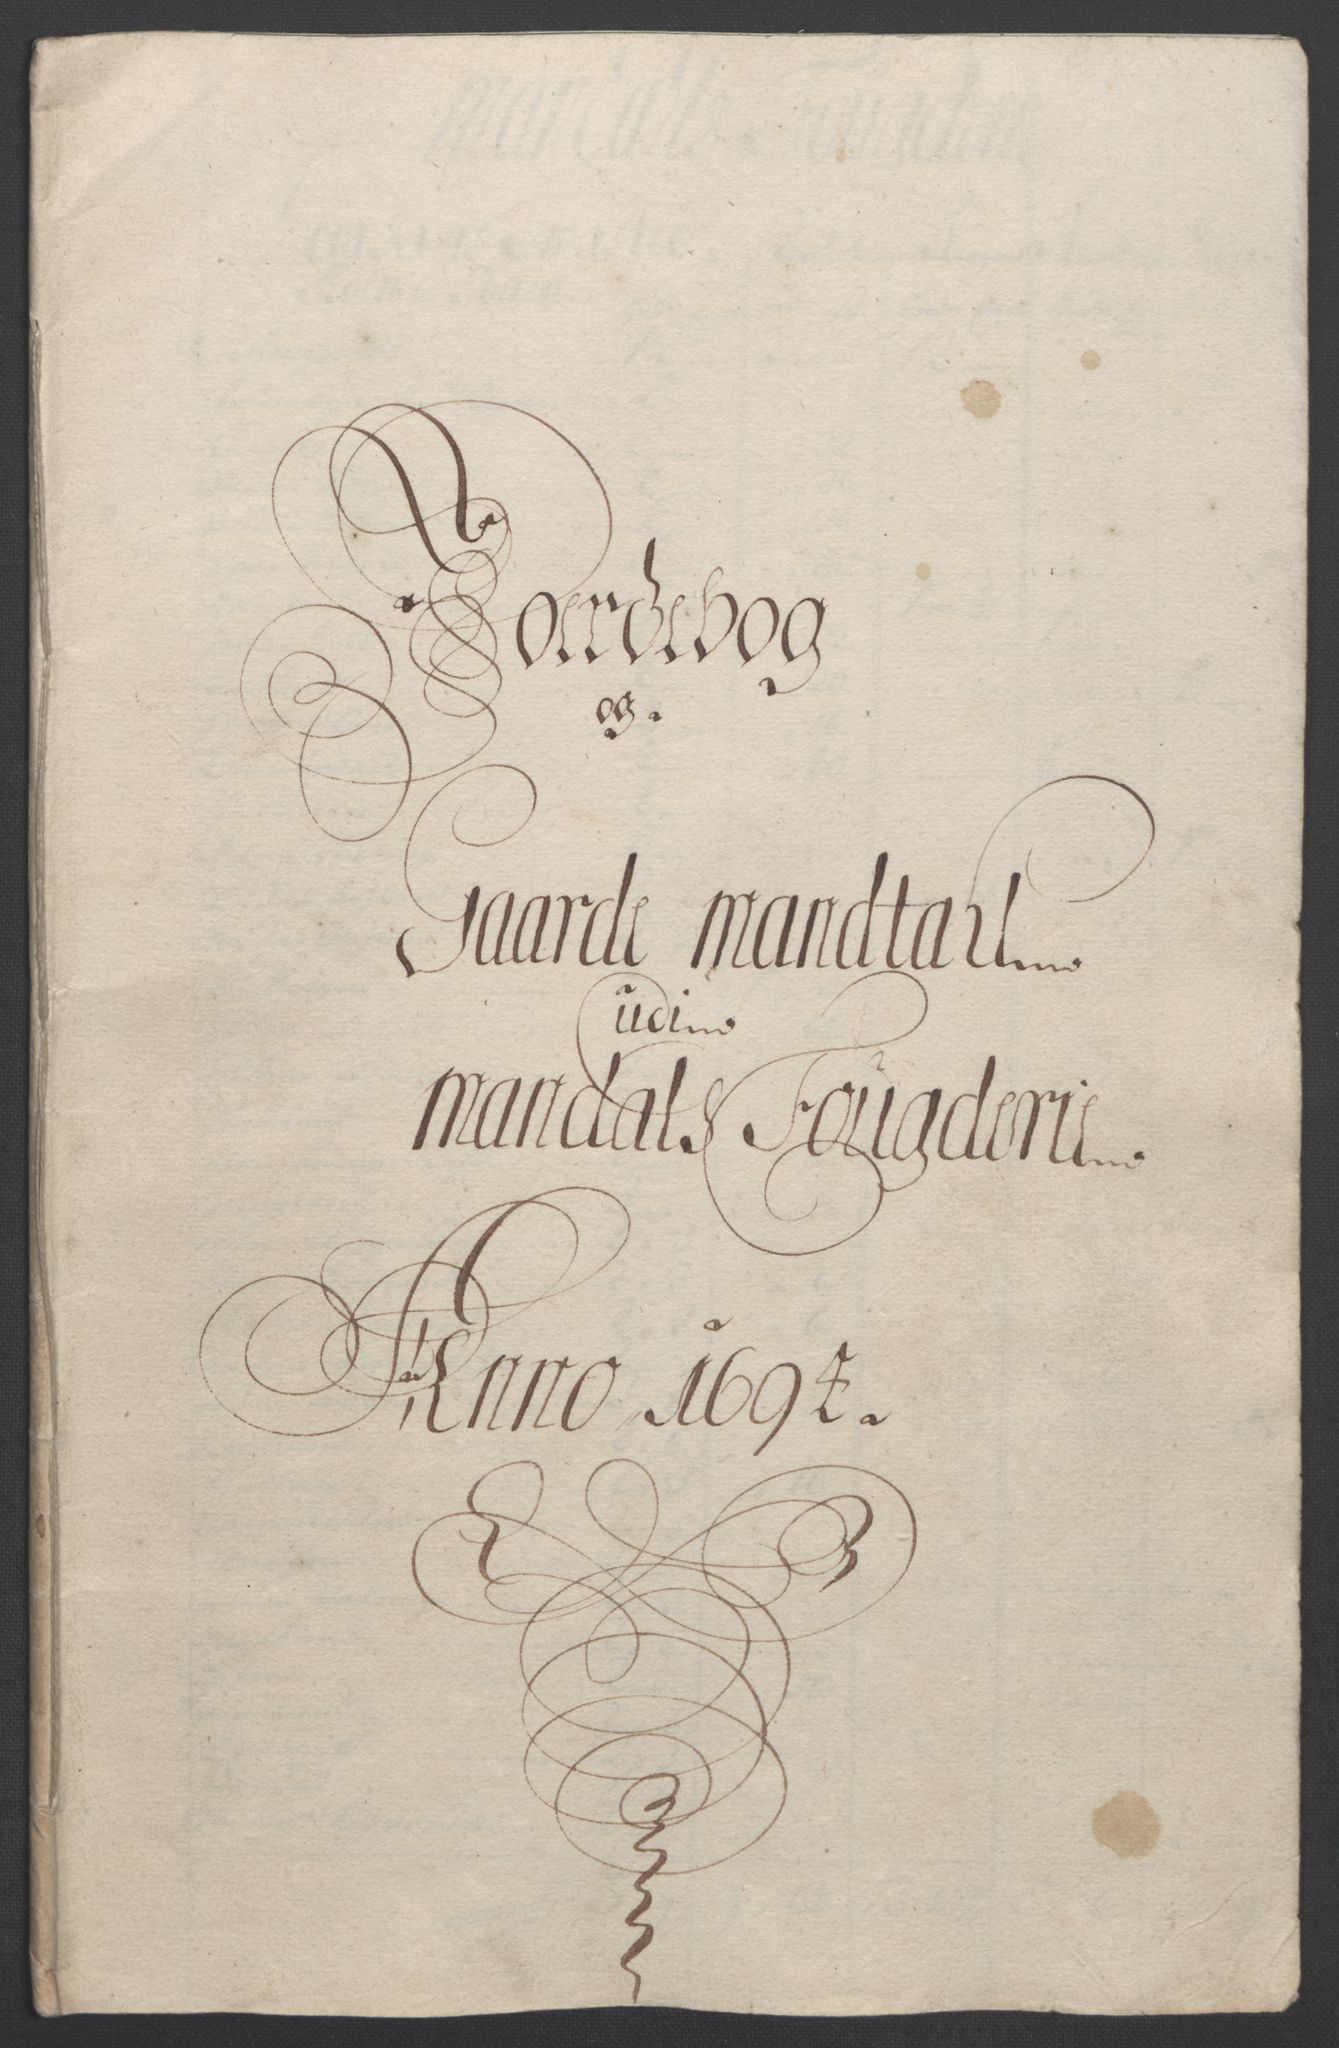 Joerdebog
og
Gaarde mandtall
udi
mandals Fougderie
Anno 1694.